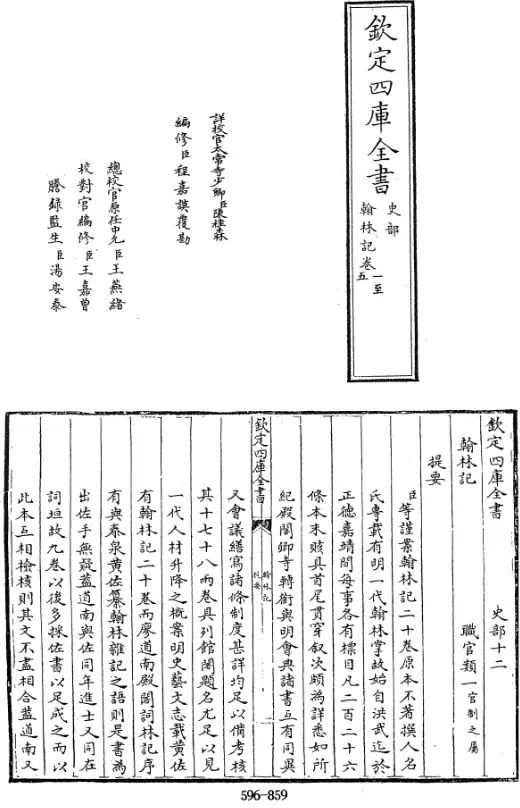 欽定四庫全書
史部
翰林記卷一至五
詳校官太常寺少卿臣陳桂森
編修臣程嘉謨覆勘
總校官原任中允臣王燕緒
校對官編修臣王嘉曾
謄錄監生臣湯安泰
欽定四庫全書 史部十二
翰林記 職官類一官制之屬
提要
臣等謹案翰林記二十卷原本不著撰人名
氏専載有明一代翰林掌故始自洪武迄於
正德嘉靖間每事各有標目凡二百二十六
條本末賅具首尾貫穿叙次頗為詳悉如所
紀殿閣卿寺轉銜與明會典諸書互有同異
欽定四庫全書 翰林記 提要 一
又會議繕寫諸條制度甚詳均足以備考核
其十七十八兩卷具列館閣題名尤足以見
一代人材升降之概案明史藝文志載黄佐
有翰林記二十卷而廖道南殿閣詞林記序
有與泰泉黄佐纂翰林雜記之語則是書為
出佐手無疑蓋道南與佐同年進士又同在
詞垣故九卷以後多採佐書以足成之而以
此本互相檢核則其文不盡相合蓋道南又
596-859